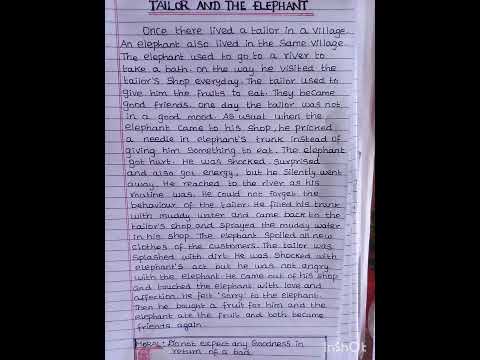 TAILOR AND THE ELEPHANT
Once there lived a tailor in a village.
An elephant also lived in the same village
The elephant used to go to a river to
take a bath. on the way he visited the
tailor's shop everyday. The tailor used to
give him the fruits to eat. They became
good friends. one day the tailor was not
in a good mood. As usual when the
elephant came to his shop, he pricked
a needle in elephant's trunk instead of
giving him something to eat. The elephant
got hurt. He was shocked, surprised
and also got energy, but he silently went
away. He reached to the river as his
routine was. He could not forget the
behaviour of the tailor. He filled his trunk
with muddy water and came back to the
tailor's shop and sprayed the muddy water
in his shop. The elephant spoiled all new
clothes of the customers. The tailor was
splashed with dirt. He was shocked with
elephant's act but he was not angry
with the elephant. He came out of his shop
and touched the elephant with love and
affection. He felt 'sorry' to the elephant.
Then he bought a fruit for him and the
elephant ate the fruit and both became
friends again.
MORAL:- Do not expect any Goodness in
return of a bad.
InShOt